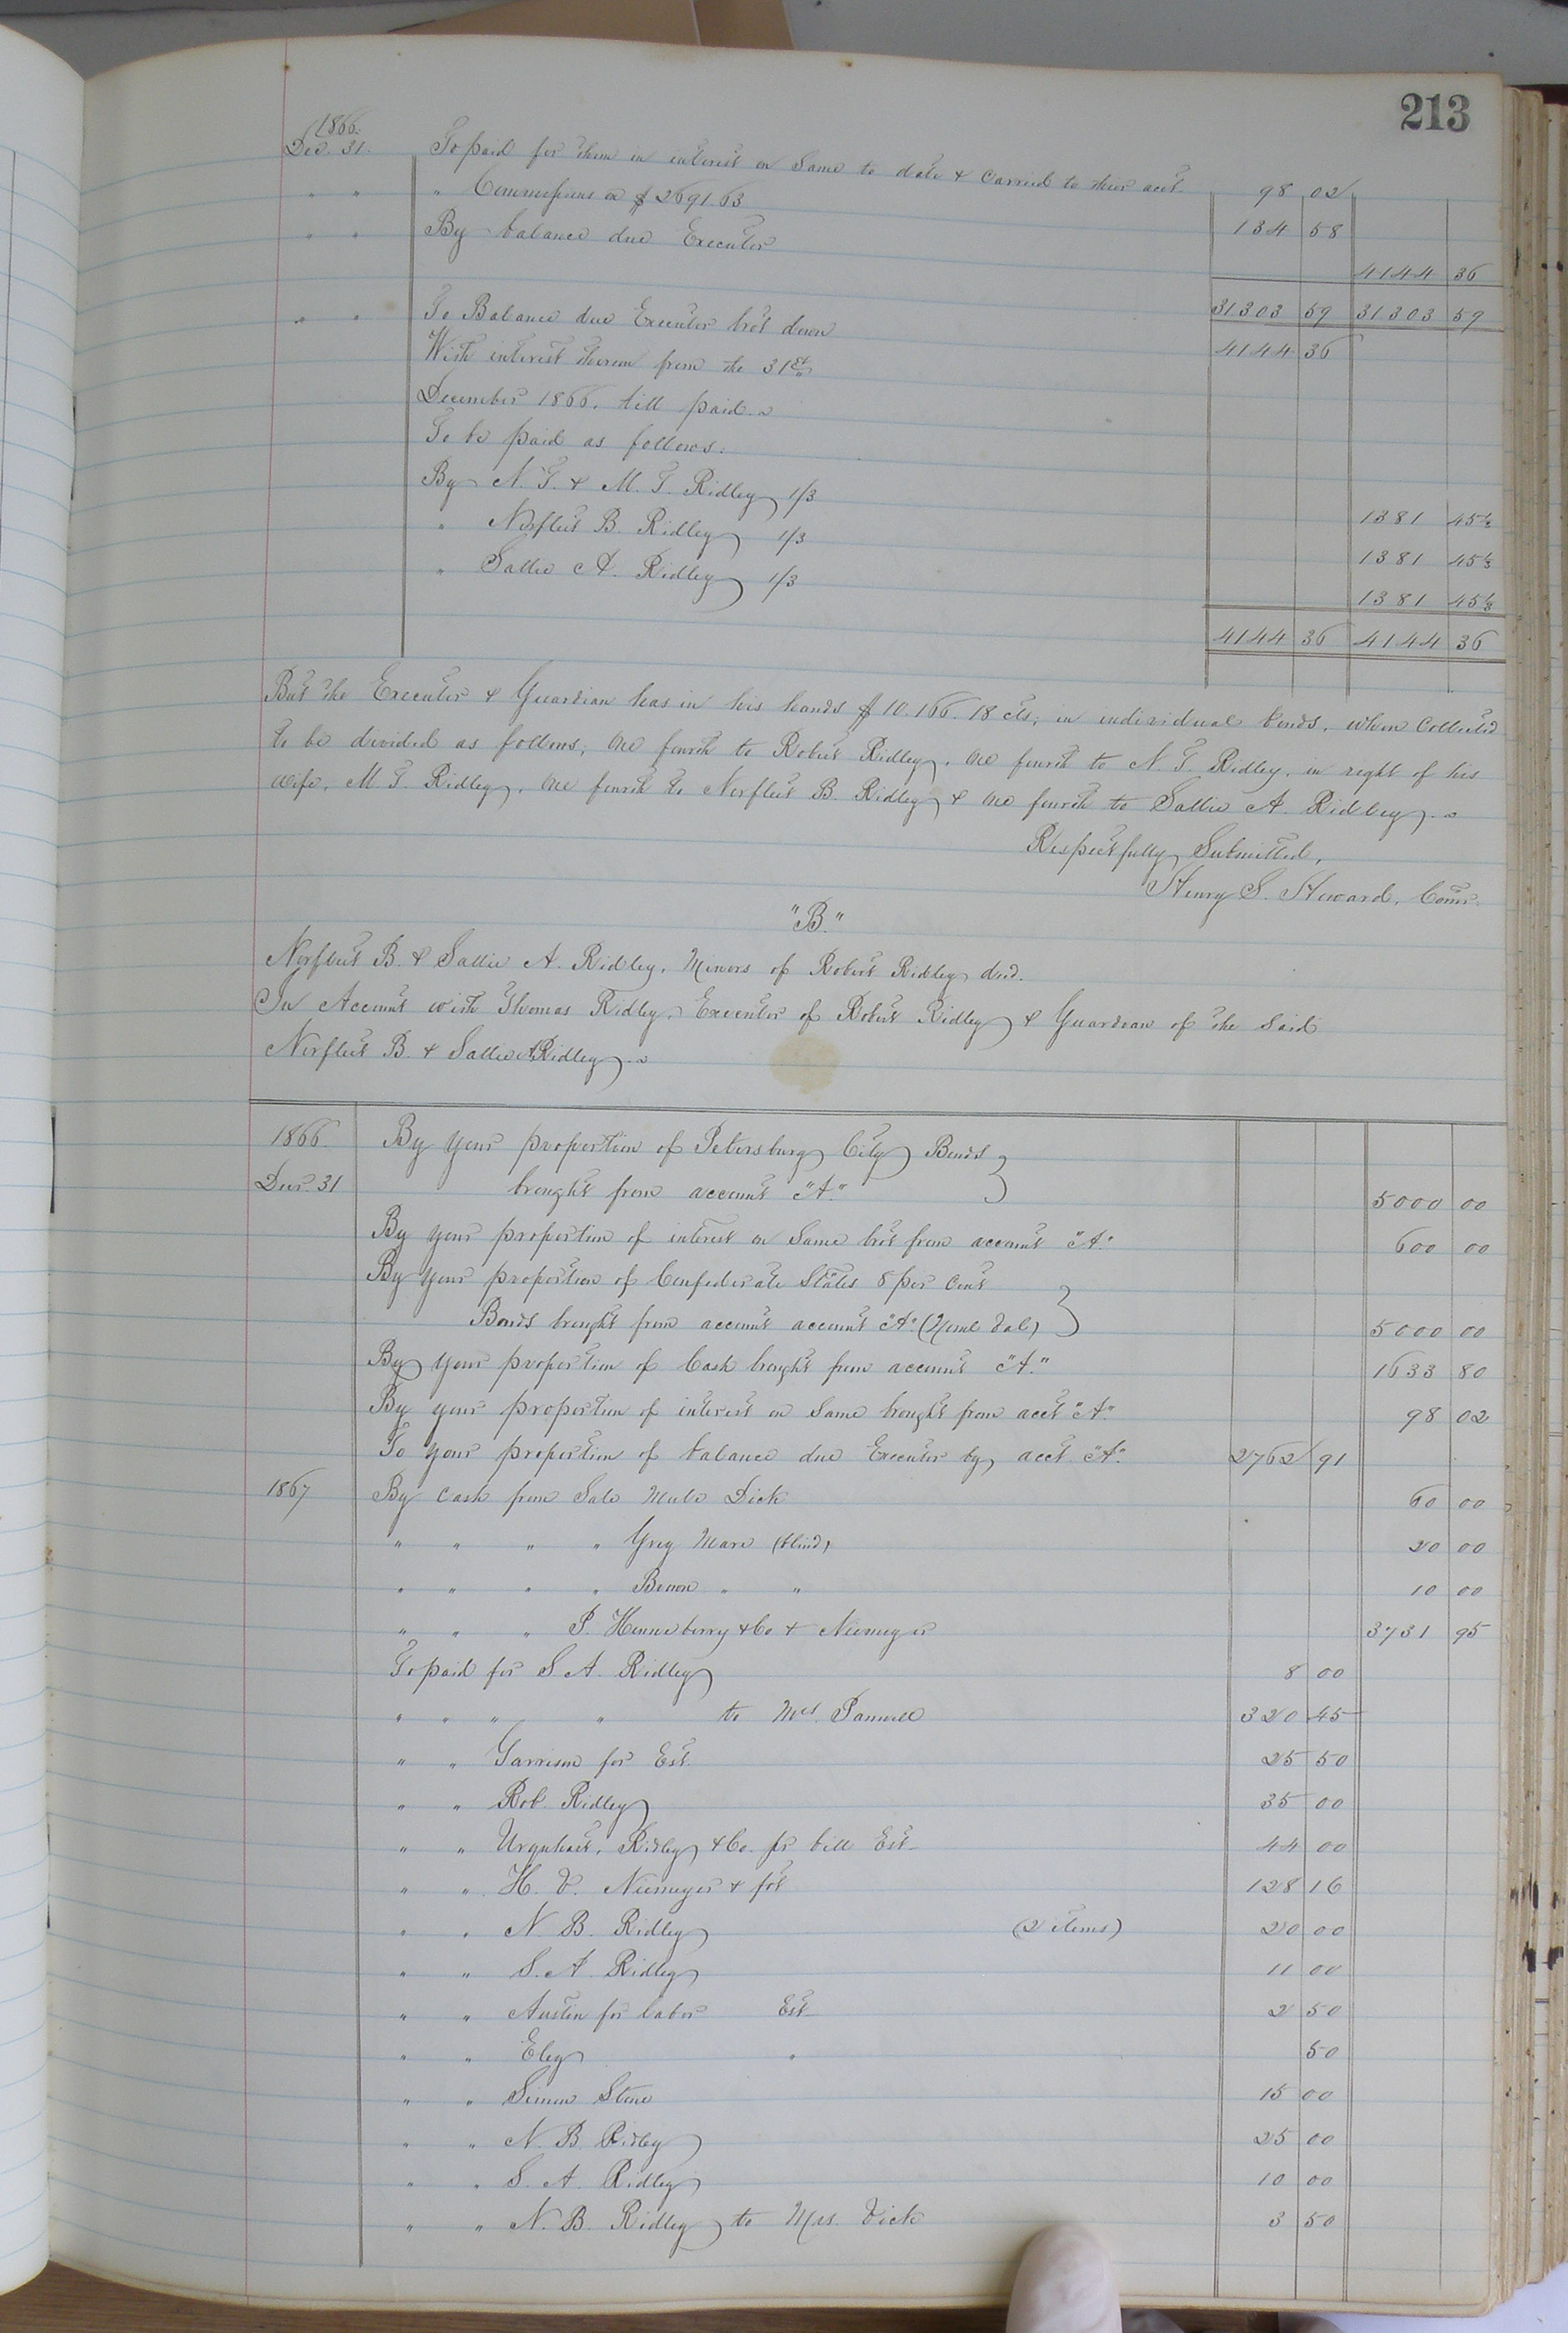 213
1866.
Dec. 31. To paid for them in interest on Same to date & Carried to their acct. 98 02
" " " Commissions on $2691.63 134 58
" " By balance due Executor 4144 36
31303 59 31303 59
" " To Balance due Executor bro't down 4144 36
With interest thereon from the 31st
December 1866. till paid.
To be paid as follows.
By N. T. & M. T. Ridley 1/3 1381 45 1/3
" Norfleet B. Ridley 1/3 1381 45 1/3
" Sallie A. Ridley 1/3 1381 45 1/3
4144 36 4144 36
But the Executor & Guardian has in his hands $10.166.18 cts; in individual bonds, when Collected
to be divided as follows; One fourth to Robert Ridley, One fourth to N. T. Ridley, in right of his
wife, M. T. Ridley, One fourth to Norfleet B. Ridley & One fourth to Sallie A. Ridley.
Respectfully Submitted,
Henry S. Howard, Comr.
"B."
Norfleet B. & Sallie A. Ridley, Minors of Robert Ridley decd.
In Account with Thomas Ridley, Executor of Robert Ridley & Guardian of the Said
Norfleet B. & Sallie A Ridley.
1866. By your proportion of Petersburg City Bonds
Decr. 31 brought from account "A." 5000 00
By your proportion of interest on Same bro't from account "A." 600 00
By your proportion of Confederate States 8 per Cent
Bonds brought from account account "A." (Noml Val) 5000 00
By your proportion of Cash brought from account "A." 1633 80
By your proportion of interest on Same brought from acct "A." 98 02
To your proportion of balance due Executor by acct "A." 2762 91
1867 By Cash from Sale Mule Dick 60 00
" " " " Grey Mare (blind) 20 00
" " " " Brown " " 10 00
" " " P. Henneberry & Co & Niemeyer 3731 95
To paid for S A. Ridley 8 00
" " " " to Mrs. Pannill 320 45
" " Garrison for Est. 25 50
" " Rob. Ridley 35 00
" " Urquhart, Ridley & Co. for bill Est 44 00
" " H. V. Niemeyer & for 128 16
" " N B. Ridley (2 items) 20 00
" " S. A. Ridley 11 00
" " Austin for labor Est 2 50
" " Eley " 50
" " Simon Stone 15 00
" " N. B. Ridley 25 00
" " S. A. Ridley 10 00
" " N. B. Ridley to Mrs. Vick 3 50